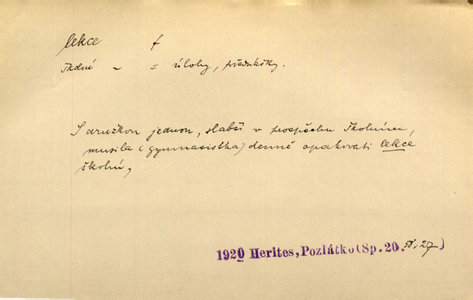 lekce f
školní – = úlohy, přednášky.
S družkou jednou, slabší v prospěchu školním,
musila (gymnasistka) denně opakovati lekce
školní,
1920 Herites, Pozlátko (Sp. 20. 58, 27)